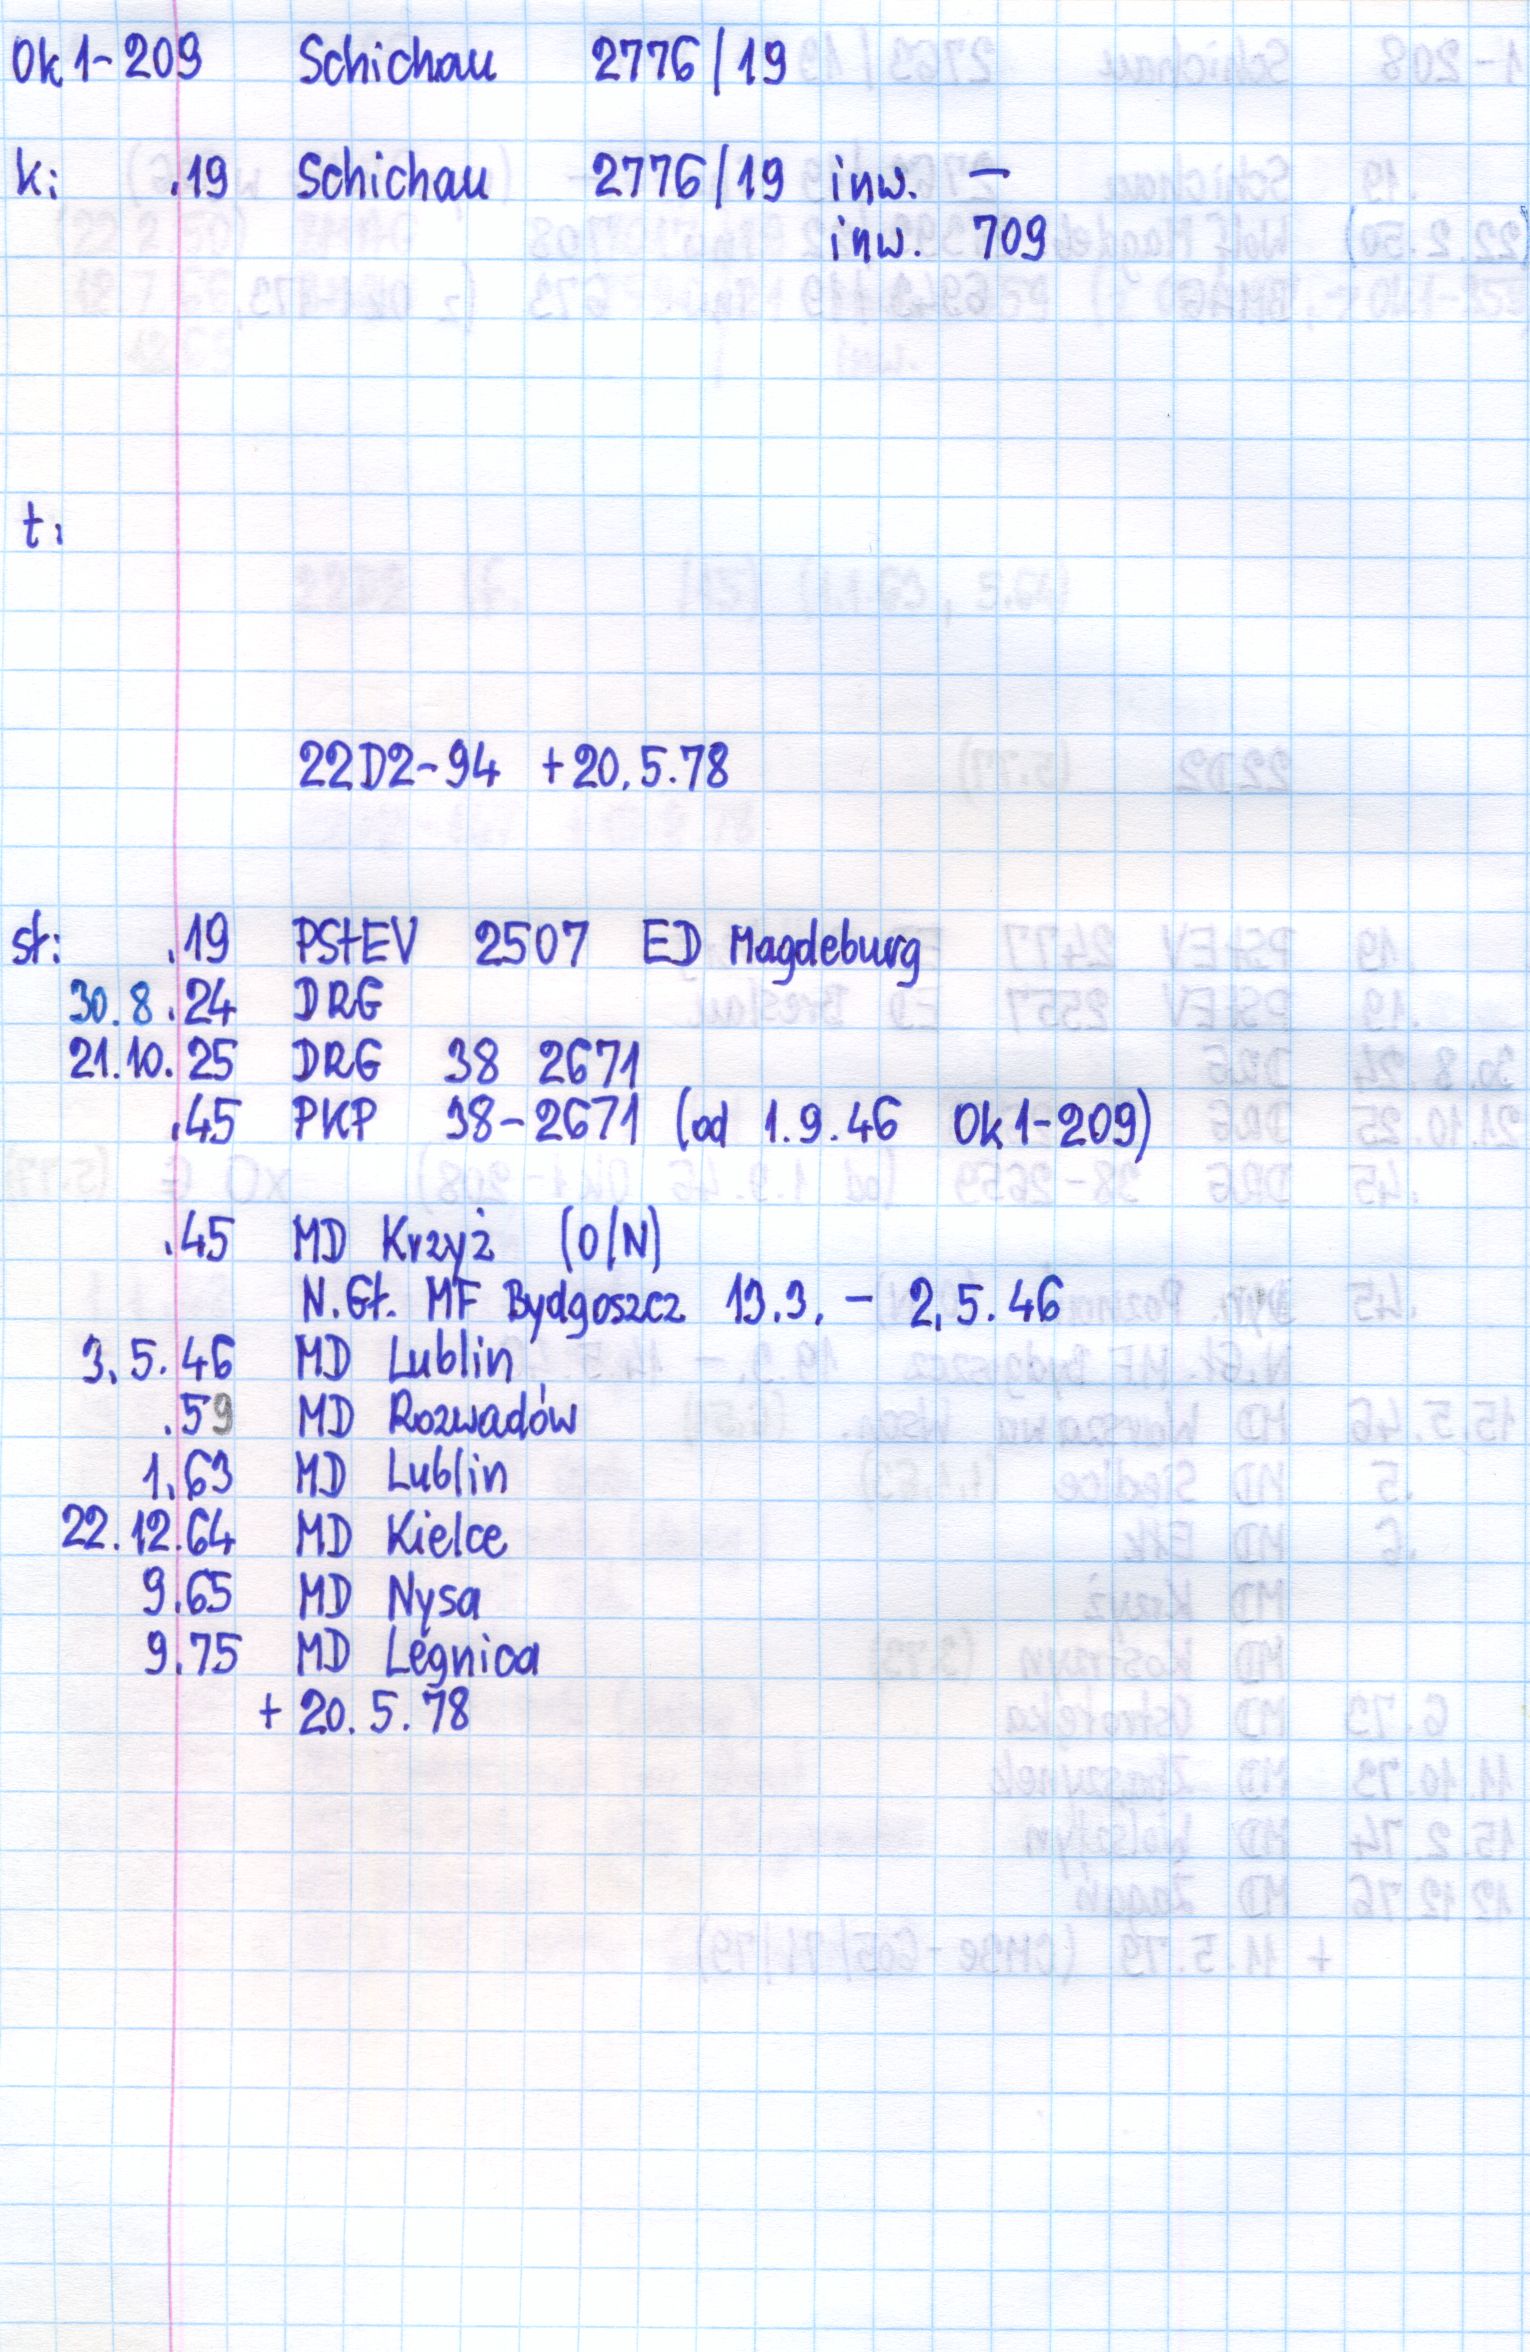 Ok1-209 Schichau 2776/19
k: .19 Schichau 2776/19 inw. —
inw. 709
t:
22D2-94 +20.5.78
st: .19 PStEV 2507 ED Magdeburg
30.8.24 DRG
21.10.25 DRG 38 2671
.45 PKP 38-2671 (od 1.9.46 Ok1-209)
.45 MD Krzyż (O/N)
N.Gł. MF Bydgoszcz 13.3. – 2.5.46
3.5.46 MD Lublin
.59 MD Rozwadów
1.63 MD Lublin
22.12.64 MD Kielce
9.65 MD Nysa
9.75 MD Legnica
+ 20.5.78